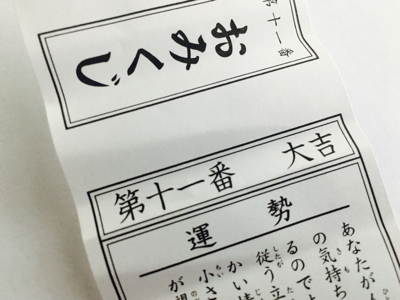 第十一番
おみくじ
第十一番 大吉
運勢
あなたが
の気持ち
るので
従う立
かい情
小さ
が